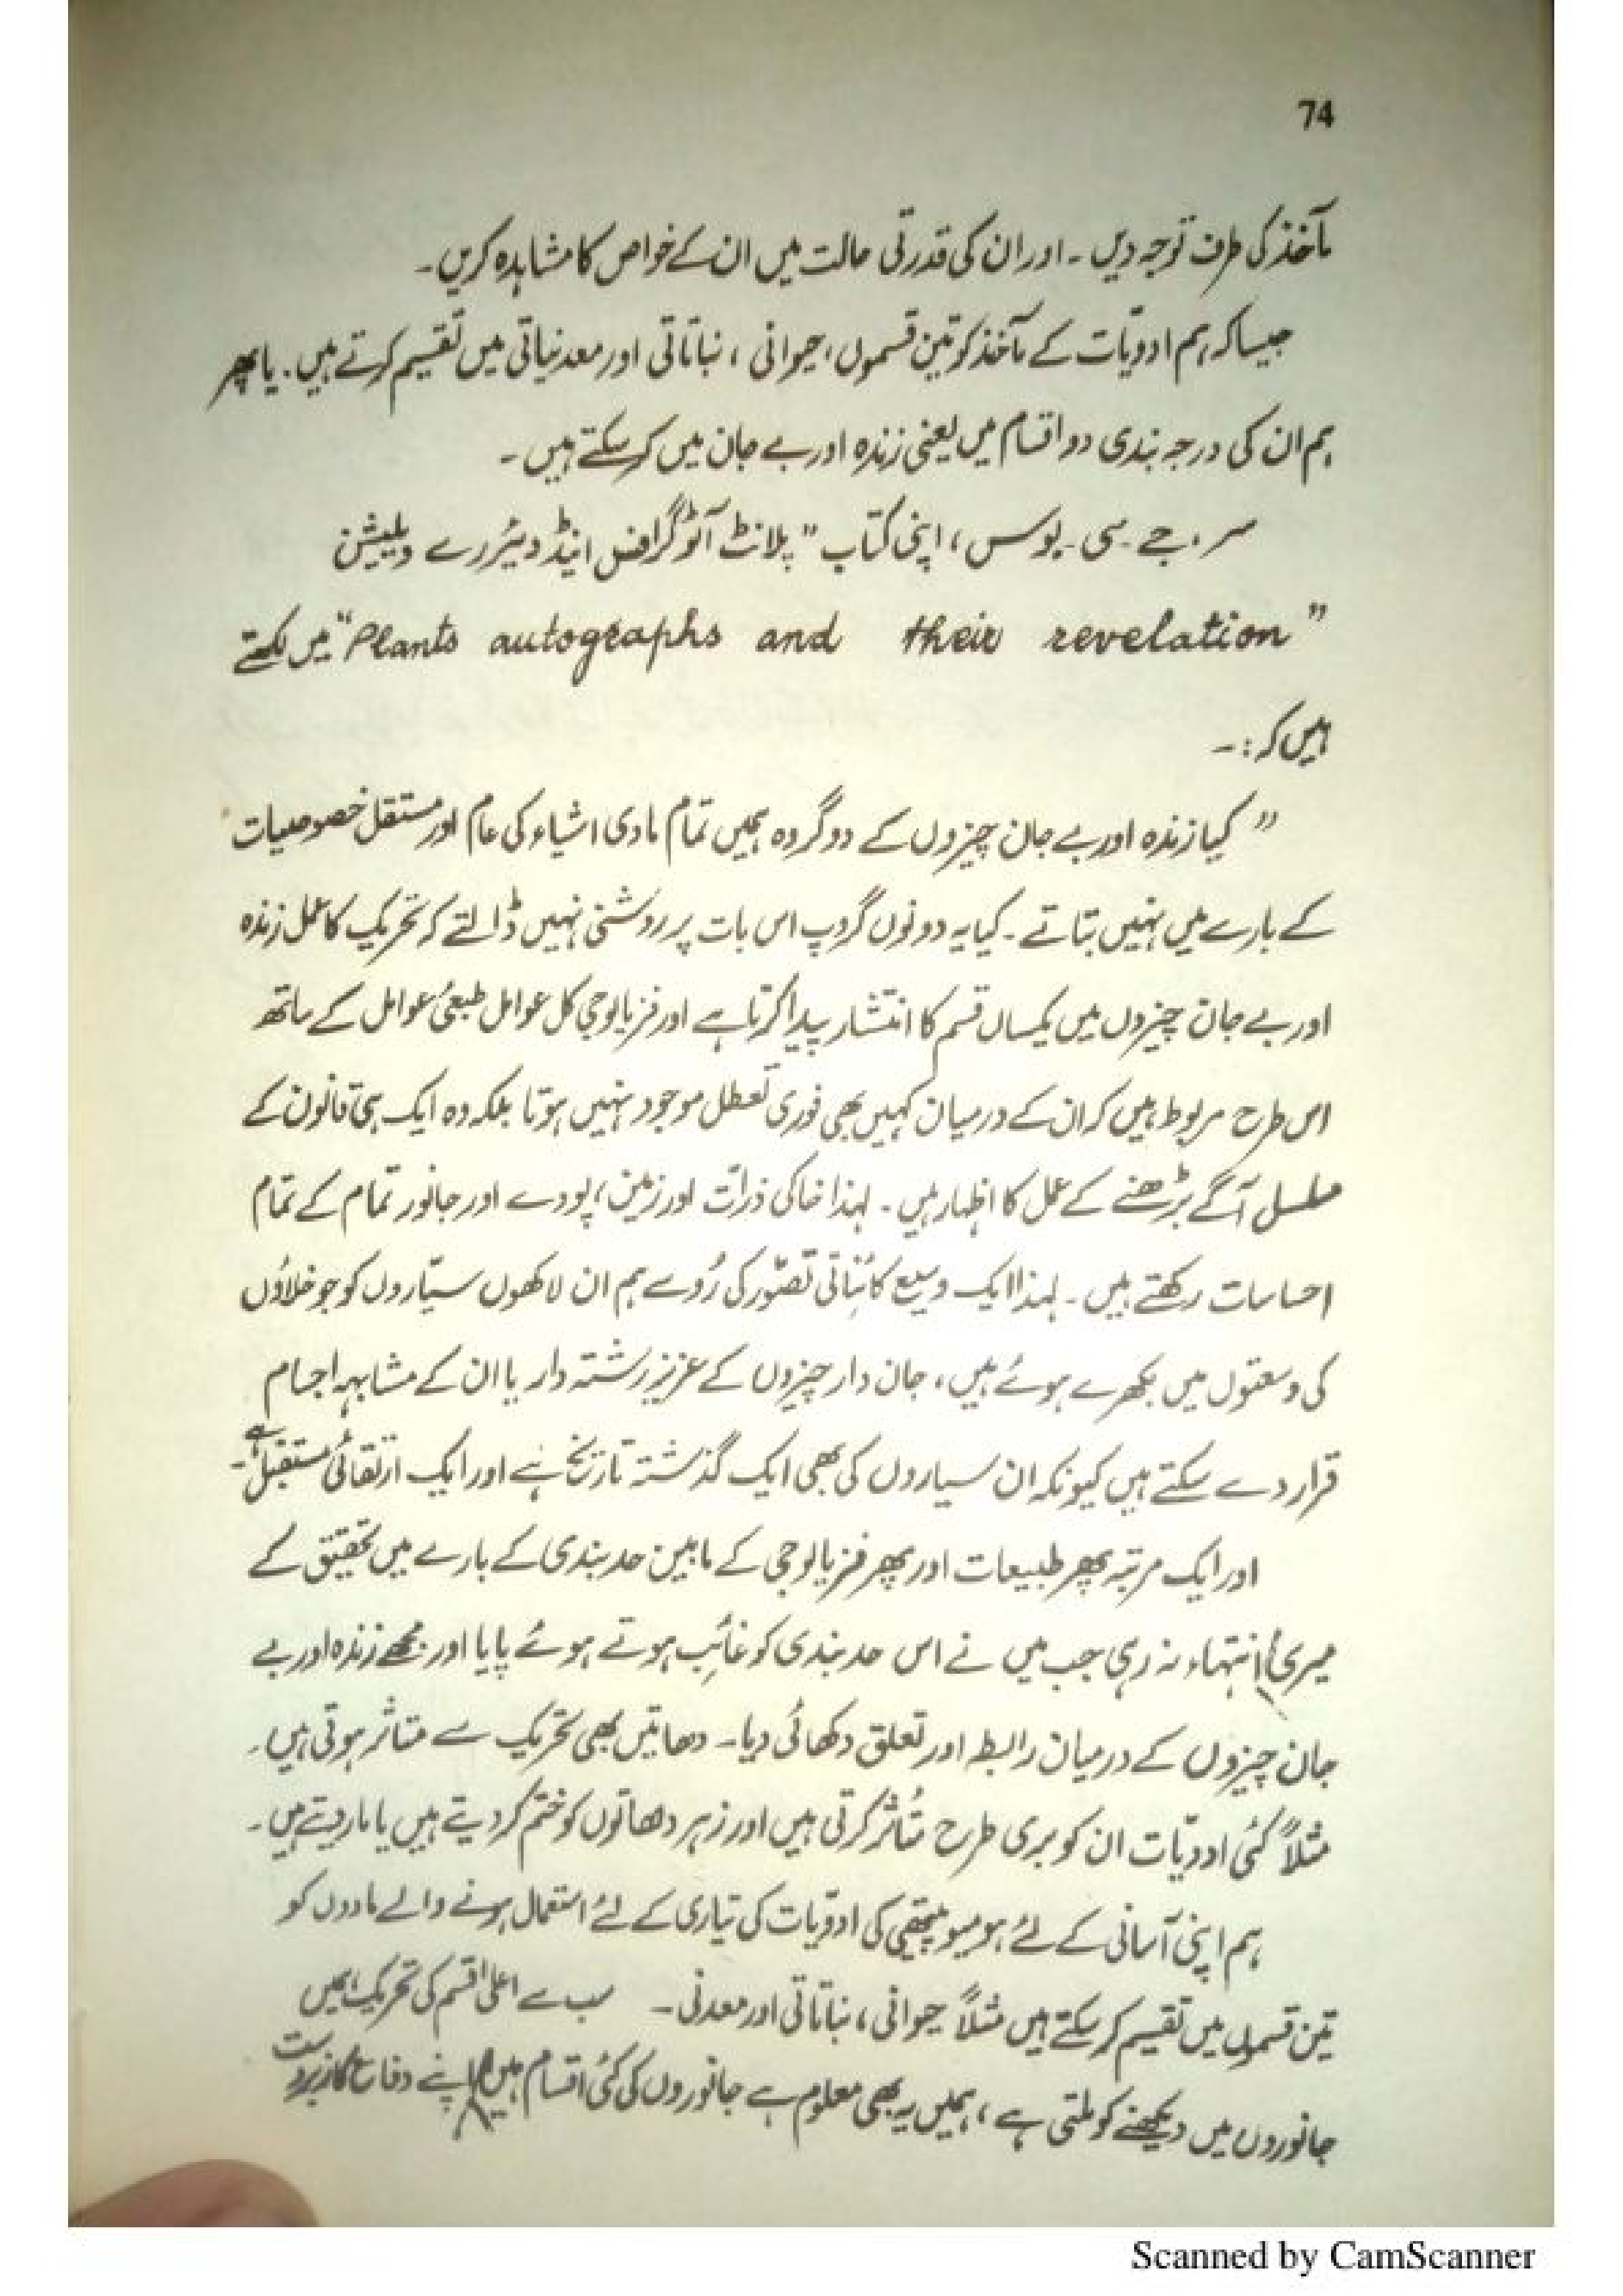 74
مآخذ کی طرف توجہ دیں ۔ اور ان کی قدرتی حالت میں ان کے خواص کا مشاہدہ کریں ۔
جیسا کہ ہم ادویّات کے مآخذ کو تین قسموں، حیوانی ، نباتاتی اور معدنیاتی میں تقسیم کرتے ہیں ۔ یا پھر
ہم ان کی درجہ بندی دو اقسام میں یعنی زندہ اور بے جان میں کر سکتے ہیں ۔
سر ۔ جے ۔ سی ۔ بوس ، اپنی کتاب " پلانٹ آٹوگرافس اینڈ دیئر رے ویلیشن
" Plants autographs and their revelation " میں لکھتے
ہیں کہ :۔
" کیا زندہ اور بے جان چیزوں کے دو گروہ ہمیں تمام مادی اشیاء کی عام اور مستقل خصوصیات
کے بارے میں نہیں بتاتے ۔ کیا یہ دونوں گروپ اس بات پر روشنی نہیں ڈالتے کہ تحریک کا عمل زندہ
اور بے جان چیزوں میں یکساں قسم کا انتشار پیدا کرتا ہے اور فزیالوجی کل عوامل طبعیٔ عوامل کے ساتھ
اس طرح مربوط ہیں کہ ان کے درمیان کہیں بھی فوری تعطل موجود نہیں ہوتا بلکہ وہ ایک ہی قانون کے
مسلسل آگے بڑھنے کے عمل کا اظہار ہیں ۔ لہذا خاکی ذرات اور زمین ، پودے اور جانور تمام کے تمام
احساسات رکھتے ہیں ۔ لہذا ایک وسیع کائناتی تصوّر کی رُو سے ہم ان لاکھوں سیّاروں کو جو خلاؤں
کی وسعتوں میں بکھرے ہوئے ہیں ، جان دار چیزوں کے عزیز رشتہ دار یا ان کے مشابہہ اجسام
قرار دے سکتے ہیں کیونکہ ان سیاروں کی بھی ایک گذشتہ تاریخ ہے اور ایک ارتقائی مستقبل ہے ۔
اور ایک مرتبہ پھر طبیعات اور پھر فزیالوجی کے مابین حد بندی کے بارے میں تحقیق کے
میری انتہاء نہ رہی جب میں نے اس حد بندی کو غائب ہوتے ہوئے پایا اور مجھے زندہ اور بے
جان چیزوں کے درمیان رابطہ اور تعلق دکھائی دیا ۔ دھاتیں بھی تحریک سے متاثر ہوتی ہیں ۔
مثلاً کئی ادویّات ان کو بری طرح متُاثر کرتی ہیں اور زہر دھاتوں کو ختم کر دیتے ہیں یا مار دیتے ہیں ۔
ہم اپنی آسانی کے لئے ہومیوپیتھی کی ادویّات کی تیاری کے لئے استعمال ہونے والے مادوں کو
تین قسموں میں تقسیم کر سکتے ہیں مثلاً حیوانی ، نباتاتی اور معدنی ۔ سب سے اعلیٰ قسم کی تحریک ہمیں
جانوروں میں دیکھنے کو ملتی ہے ، ہمیں یہ بھی معلوم ہے جانوروں کی کئی اقسام ہیں اپنے دفاع کا زبردست
Scanned by CamScanner